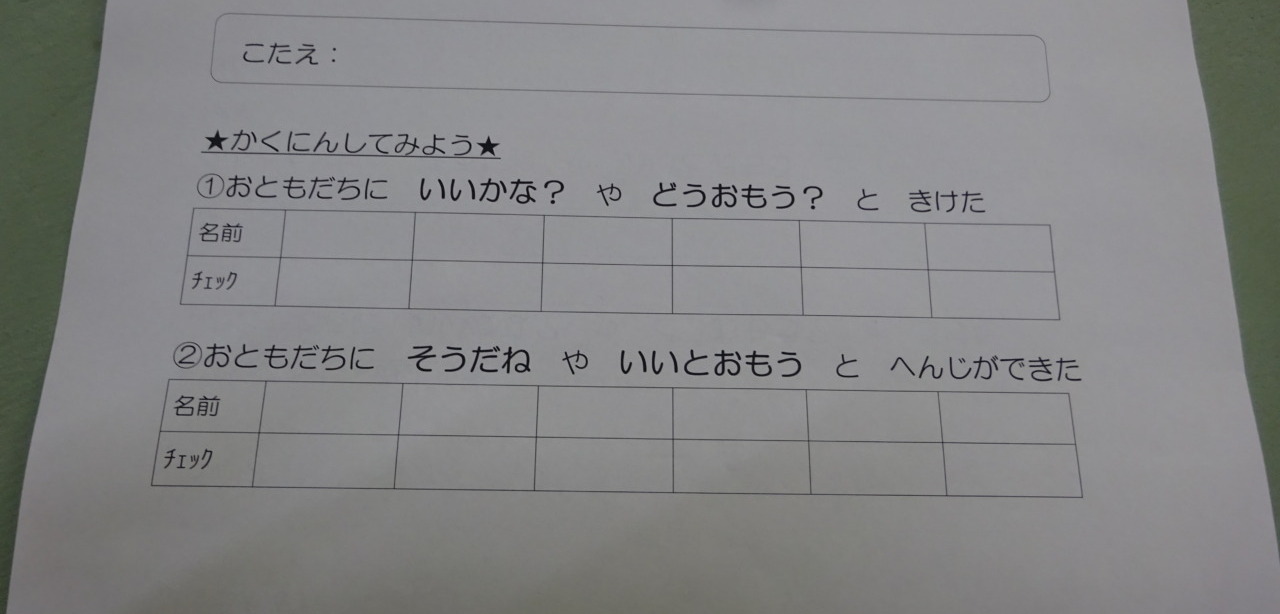 こたえ：
★かくにんしてみよう★
①おともだちに　いいかな？　や　どうおもう？　と　きけた
名前
ﾁｪｯｸ
②おともだちに　そうだね　や　いいとおもう　と　へんじができた
名前
ﾁｪｯｸ